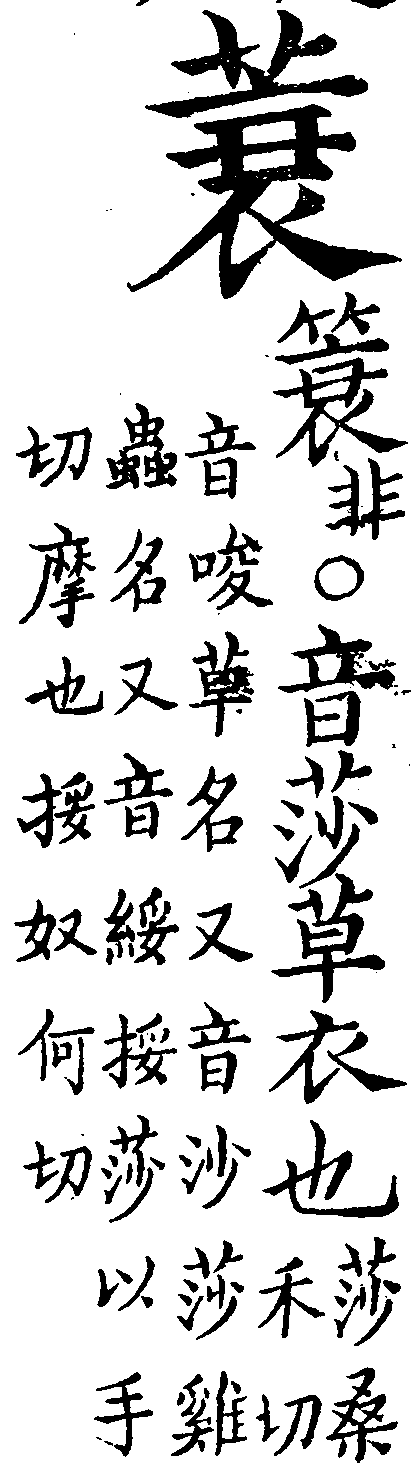 蓑
簑非〇音莎草衣也
莎桑
禾切
音唆草名又音沙莎雞
蟲名又音綏挼莎以手
切摩也挼奴何切